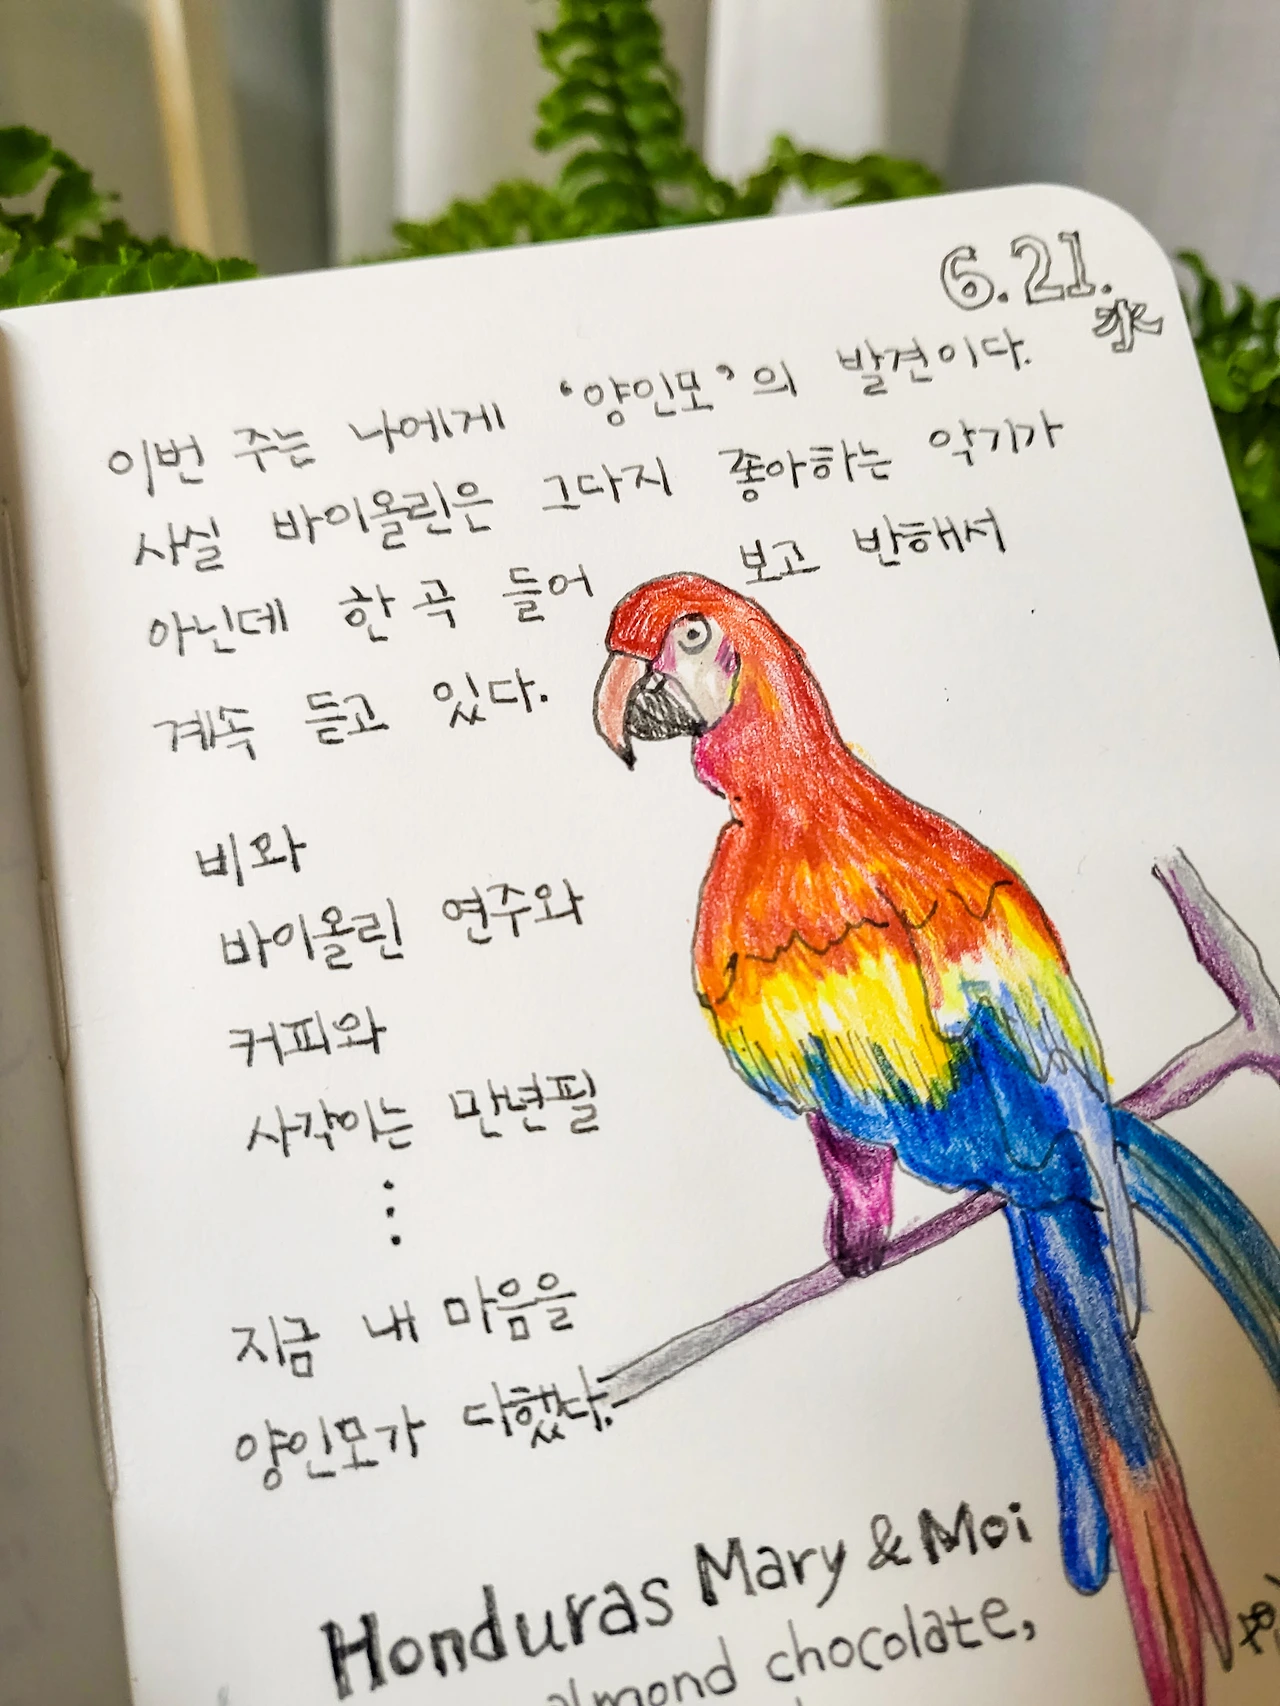 6.21.
水
이번 주는 나에게 '양인모'의 발견이다.
사실 바이올린은 그다지 좋아하는 악기가
아닌데 한 곡 들어 보고 반해서
계속 듣고 있다.
비와
바이올린 연주와
커피와
사각이는 만년필
⋮
지금 내 마음을
양인모가 다했다.
Honduras Mary & Moi
almond chocolate,